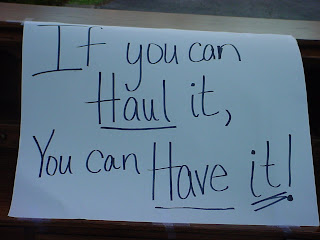 If you can
Haul it,
You can Have it!